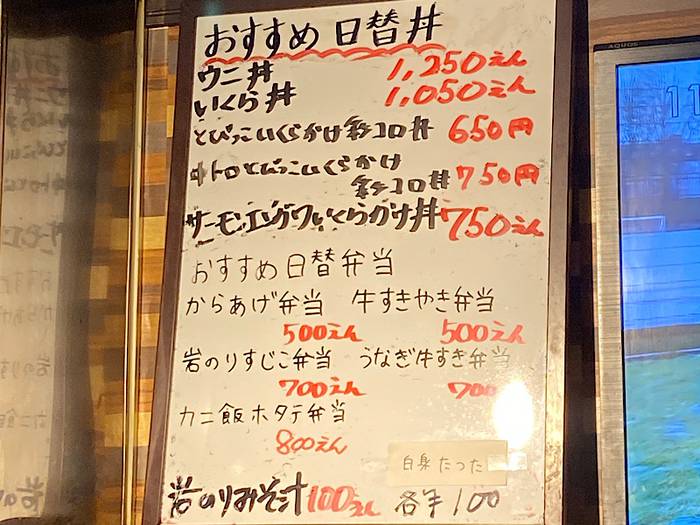 おすすめ 日替丼
ウニ丼 1,250えん
いくら丼 1,050えん
とびっこいくらかけネギトロ丼 650円
中トロとびっこいくらかけ
ネギトロ丼 750円
サーモンエンガワいくらがけ丼 750えん
おすすめ日替弁当
からあげ弁当 牛すきやき弁当
500えん 500えん
岩のりすじこ弁当 うなぎ牛すき弁当
700えん 700
カニ飯ホタテ弁当
800えん
白身たつた
岩のりみそ汁 100えん 100
AQUOS
11